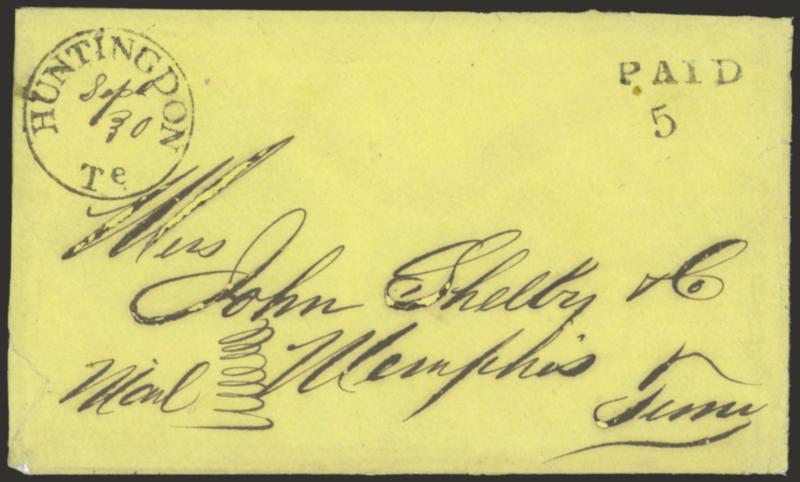 HUNTINGDON
Sept
30
Te
PAID
5
Mess
John Shelby & C
Mail Memphis
Tenn